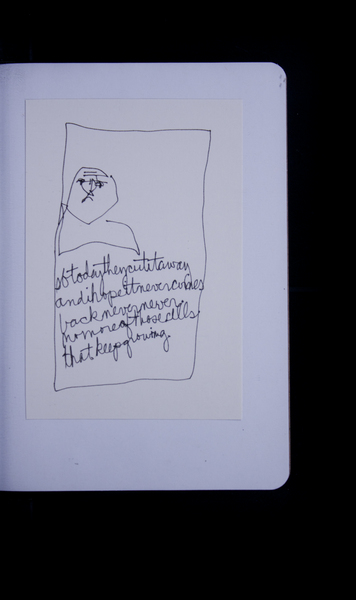 sotodaytheycutitaway
andihopeitnevercomes
backnevernever
nomoreofthosecells
thatkeepgrowing.